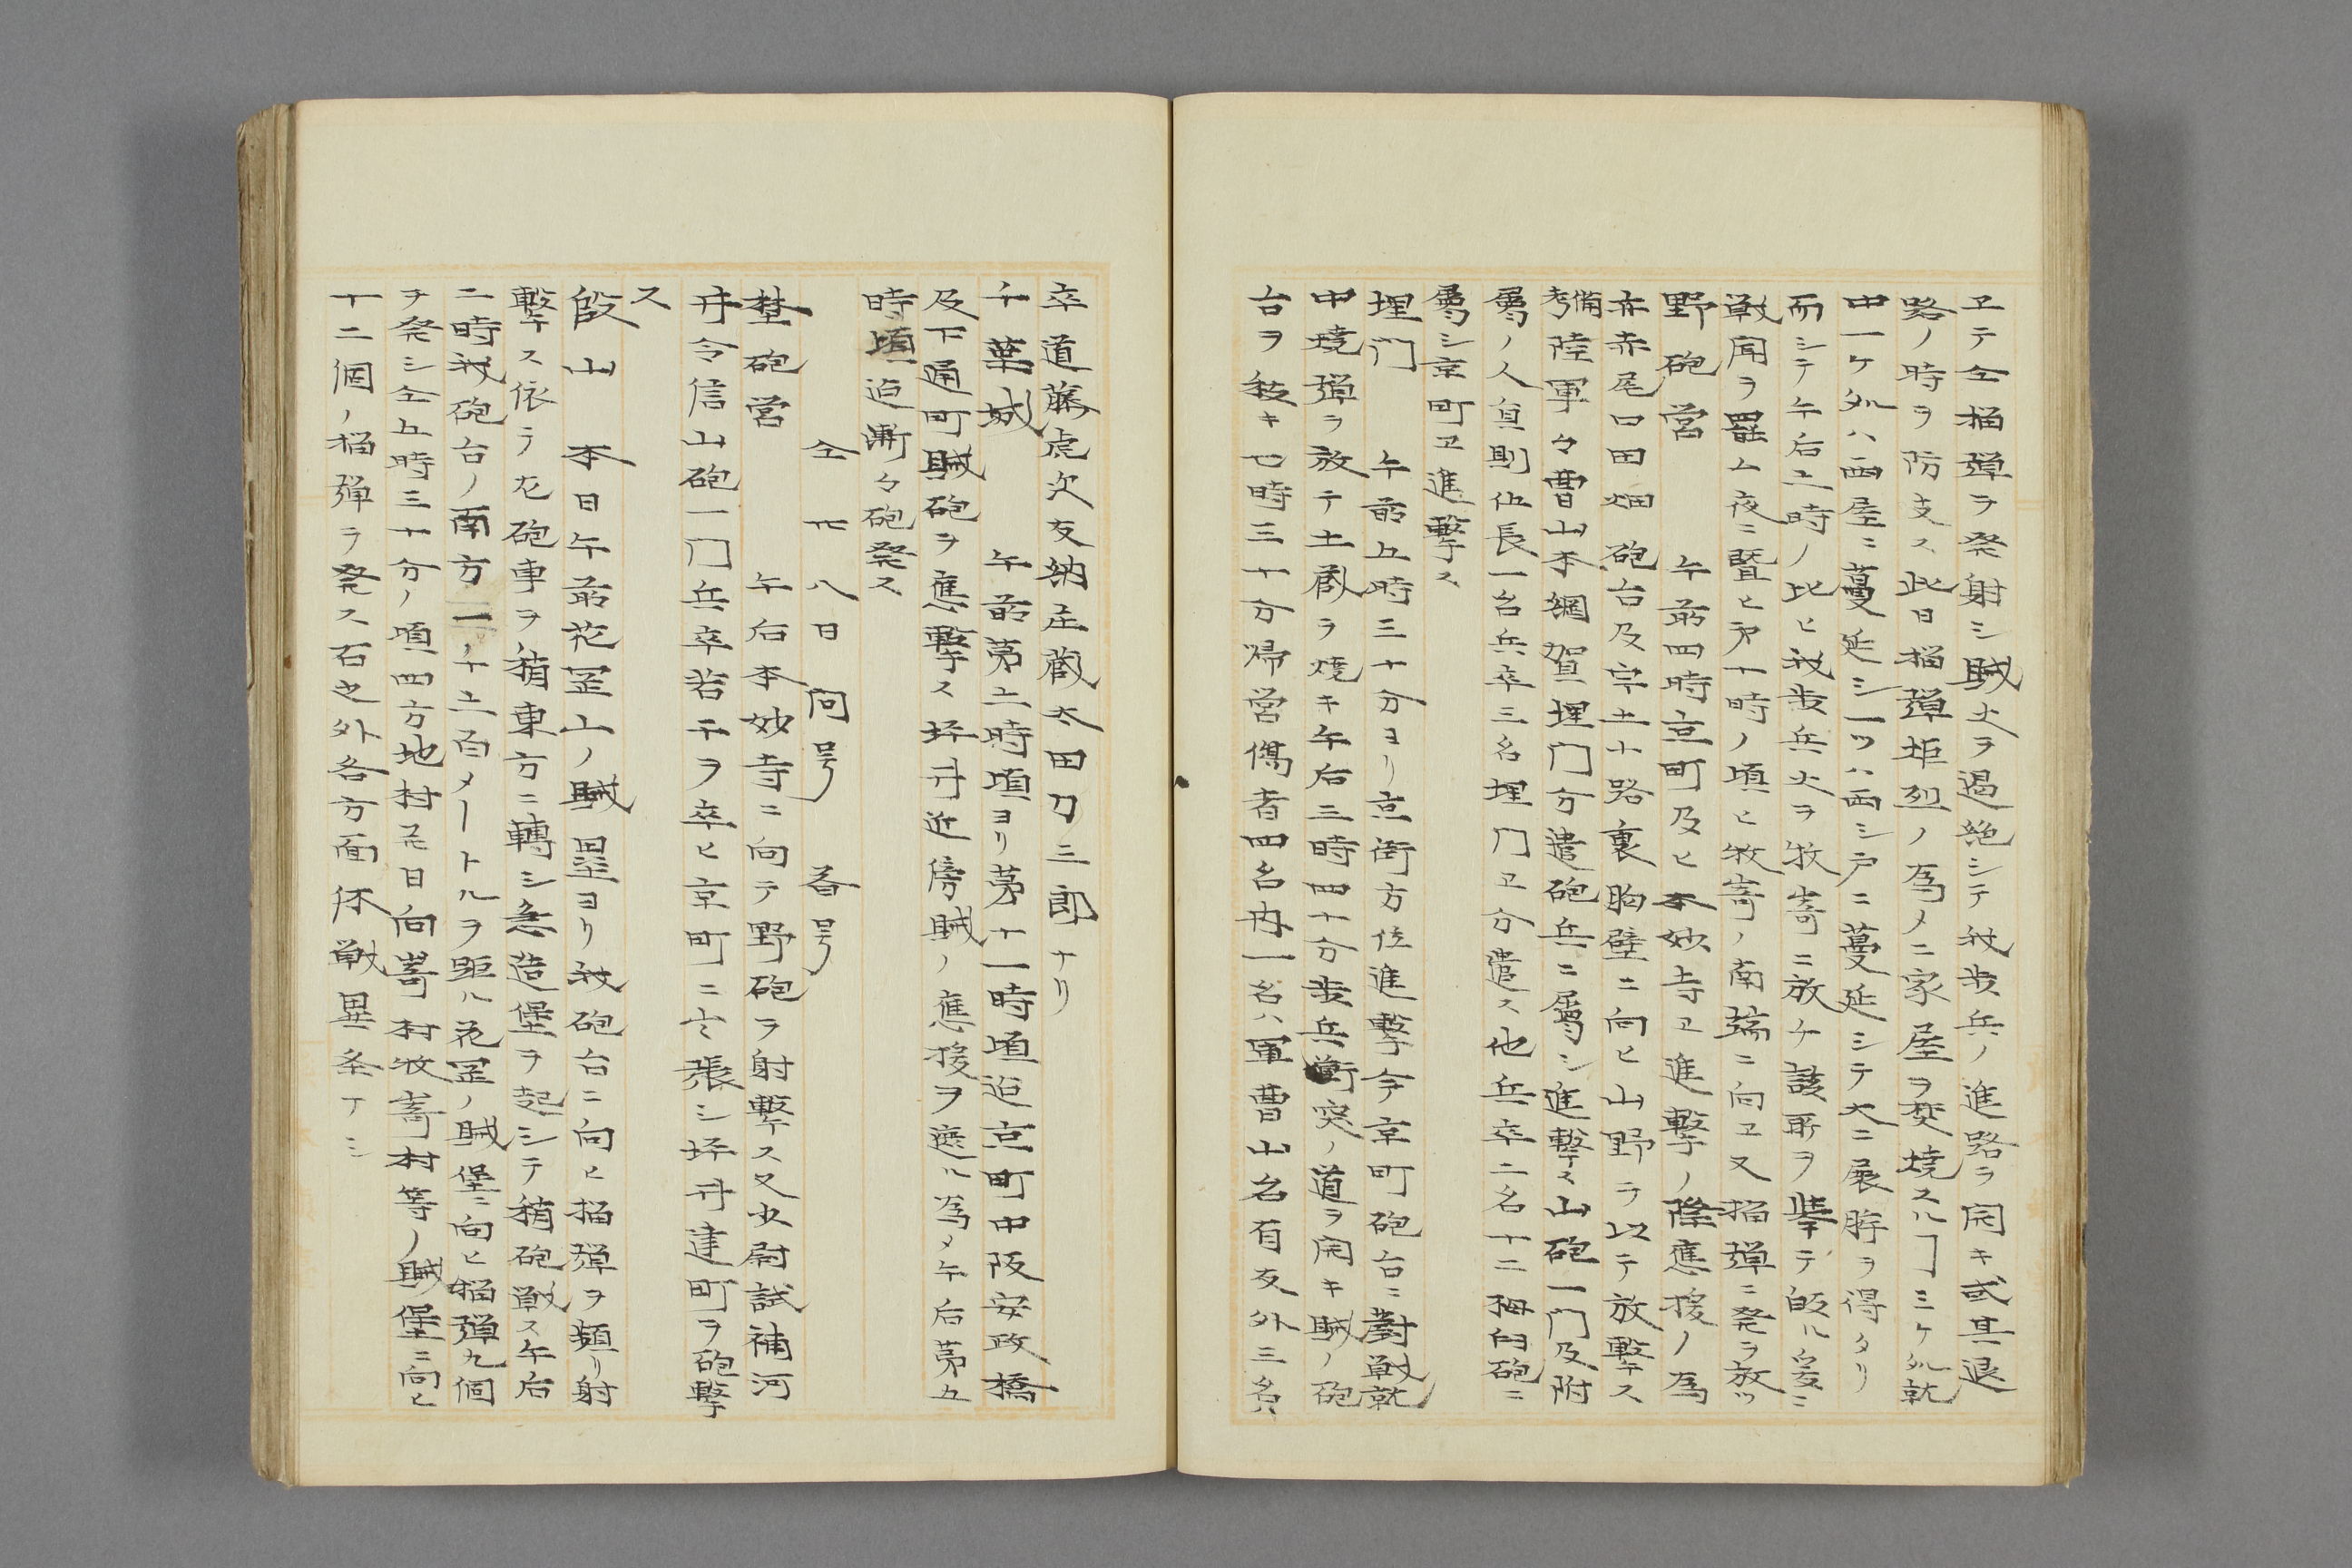 ヱテ仝榴弾ヲ発射シ賊火ヲ遏絶シテ我歩兵ノ進路ヲ開キ或其退
路ノ時ヲ防支ス此日榴弾拒烈ノ為メニ家屋ヲ焚焼スルヿ三ケ処就
中一ケ処ハ両屋ニ蔓延シ一ツハ両三戸ニ蔓延シテ大ニ展眸ヲ得タリ
而シテ午后五時ノ比ヒ我歩兵火ヲ牧嵜ニ放チ該所ヲ挙テ皈ル爰ニ
戦闘ヲ罷ム夜ニ曁ヒ第十時ノ頃ヒ牧嵜ノ南端ニ向ヱ又榴弾二発ヲ放ツ
野砲営 午前四時京町及ヒ本妙寺ヱ進撃ノ際應援ノ為
赤尾口田畑砲台及宇土十路裏胸壁ニ向ヒ山野ヲ以テ放撃ス
備考陸軍々曹山本綱賀埋門分遣砲兵ニ属シ進撃ス山砲一門及附
属ノ人員則伍長一名兵卒三名埋門ヱ分遣ス他兵卒二名十二拇臼砲ニ
属シ京町ヱ進撃ス
埋門 午前五時三十分ヨリ京街方位進撃今京町砲台ニ對戦就
中焼弾ヲ放テ土蔵ヲ焼キ午后三時四十分歩兵衝突ノ道ヲ開キ賊ノ砲
台ヲ抜キ七時三十分帰営傷者四名内一名ハ軍曹山名有友外三名ハ
卒道藤虎次友納庄蔵太田刀三郎ナリ
千葉城 午前第五時頃ヨリ第十一時頃迄京町中阪安政橋
及下通町賊砲ヲ應撃ス坪井近傍賊ノ應援ヲ遮ル為メ午后第五
時頃迄漸々砲発ス
仝 廿八日 問号 答号
埜砲営 午后本妙寺ニ向テ野砲ヲ射撃ス又少尉試補河
井令信山砲一門兵卒若干ヲ卒ヒ京町ニ出張シ坪井建町ヲ砲撃
ス
段山 本日午前花罡山ノ賊塁ヨリ我砲台ニ向ヒ榴弾ヲ頻リ射
撃ス依テ左砲車ヲ稍東方ニ轉シ急造堡ヲ起シテ稍砲戦ス午后
二時我砲台ノ南方一千五百メートルヲ距ル花罡ノ賊堡ニ向ヒ榴弾九個
ヲ発シ仝五時三十分ノ頃四方地村及日向嵜村牧嵜村等ノ賊堡ニ向ヒ
十二個ノ榴弾ヲ発ス右之外各方面休戦異条ナシ